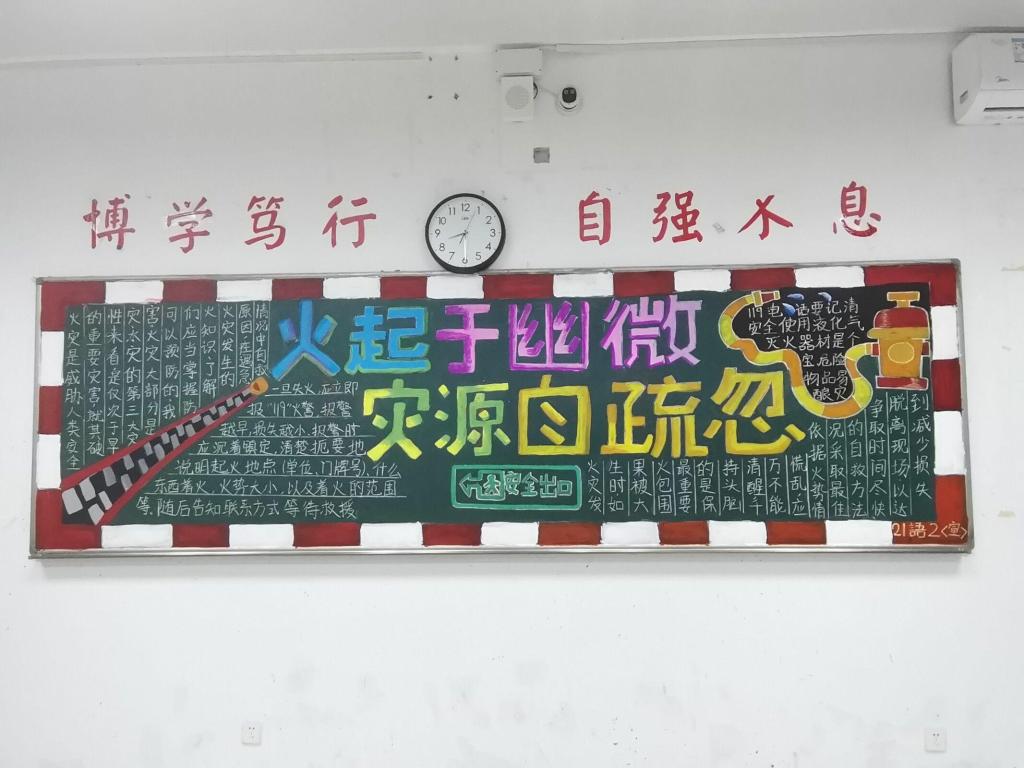 博学笃行 自强不息
火起于幽微
灾源自疏忽
火灾是威胁人类安全
的重要灾害,就其破
性来看是仅次于旱
灾水灾的第三大灾
害,火灾大部分是
可以预防的,我
们应当掌握防
火知识,了解
火灾发生的
原因,在遇急
情况中自救
一旦失火,应立即
报"119"火警,报警
越早,损失越小,报警时
应沉着镇定,清楚扼要地
说明起火地点(单位、门牌号),什么
东西着火,火势大小,以及着火的范围
等,随后告知联系方式等待救援
安全出口
火灾发
生时如
果被大
火包围
最重要
的是保
持头脑
清醒千
万不能
慌乱,应
依据火势情
况采取最佳
的自救方法
争取时间尽快
脱离现场,以达
到减少损失
119电话要记清
安全使用液化气
灭火器材是个
宝 危险
物品易
酿灾
21語2<宣>
Midea